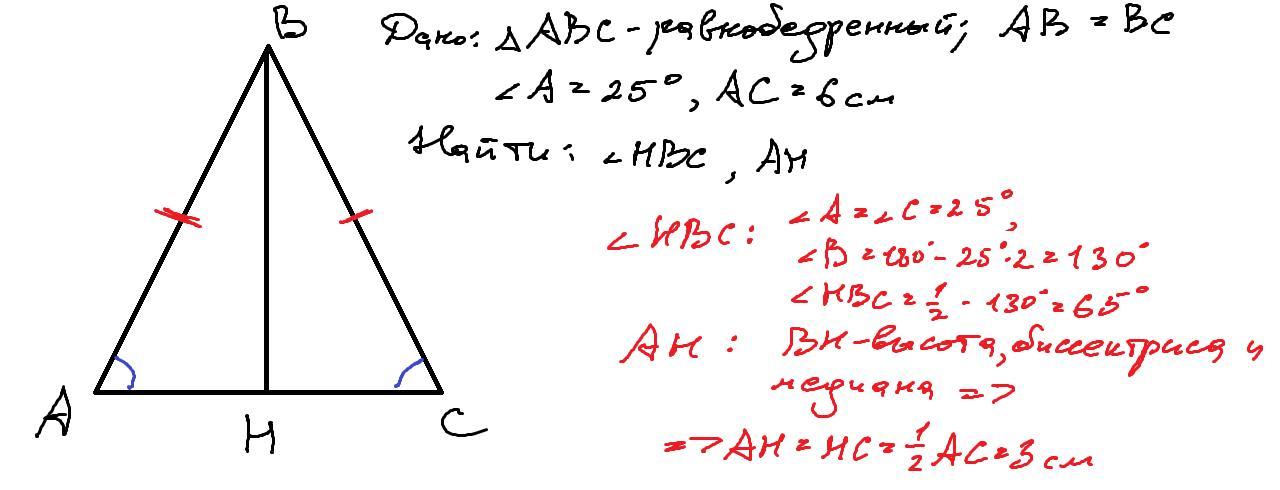 B
Дано: △ABC - равнобедренный; AB = BC
∠A = 25°, AC = 6 см
Найти: ∠HBC, AH
∠HBC: ∠A = ∠C = 25°,
∠B = 180° - 25°·2 = 130°
∠HBC = 1/2 · 130° = 65°
AH: BH - высота, биссектриса и
медиана =>
=> AH = HC = 1/2 AC = 3 см
A H C